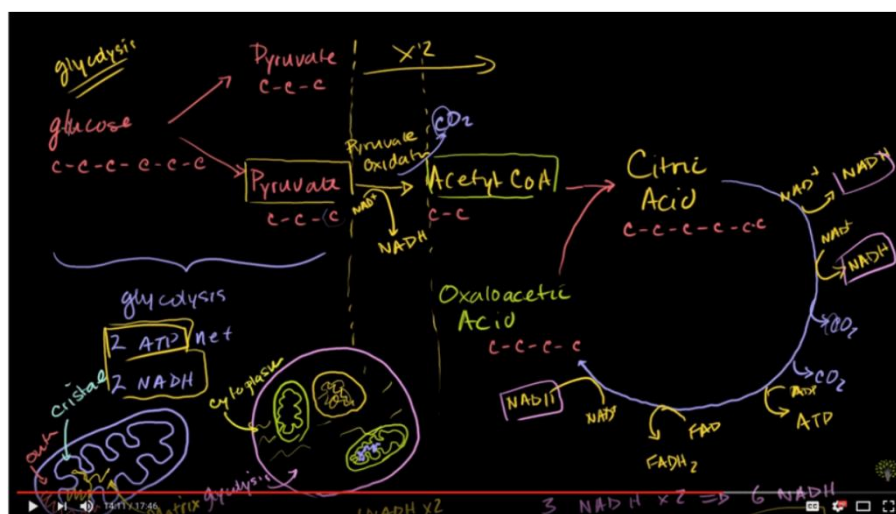 glycolysis
Pyruvate
C-C-C
X2
glucose
C-C-C-C-C-C
Pyruvate
C-C-C
Pyruvate
Oxidation
NAD+
NADH
CO2
Acetyl CoA
C-C
Citric
Acid
C-C-C-C-C-C
NAD+
NADH
NAD+
NADH
CO2
CO2
ADP
ATP
FAD
FADH2
NAD+
NADH
Oxaloacetic
Acid
C-C-C-C
glycolysis
2 ATP net
2 NADH
cristae
cytoplasm
matrix
glycolysis
NADH X2
3 NADH X2 => 6 NADH
14:11 / 17:46